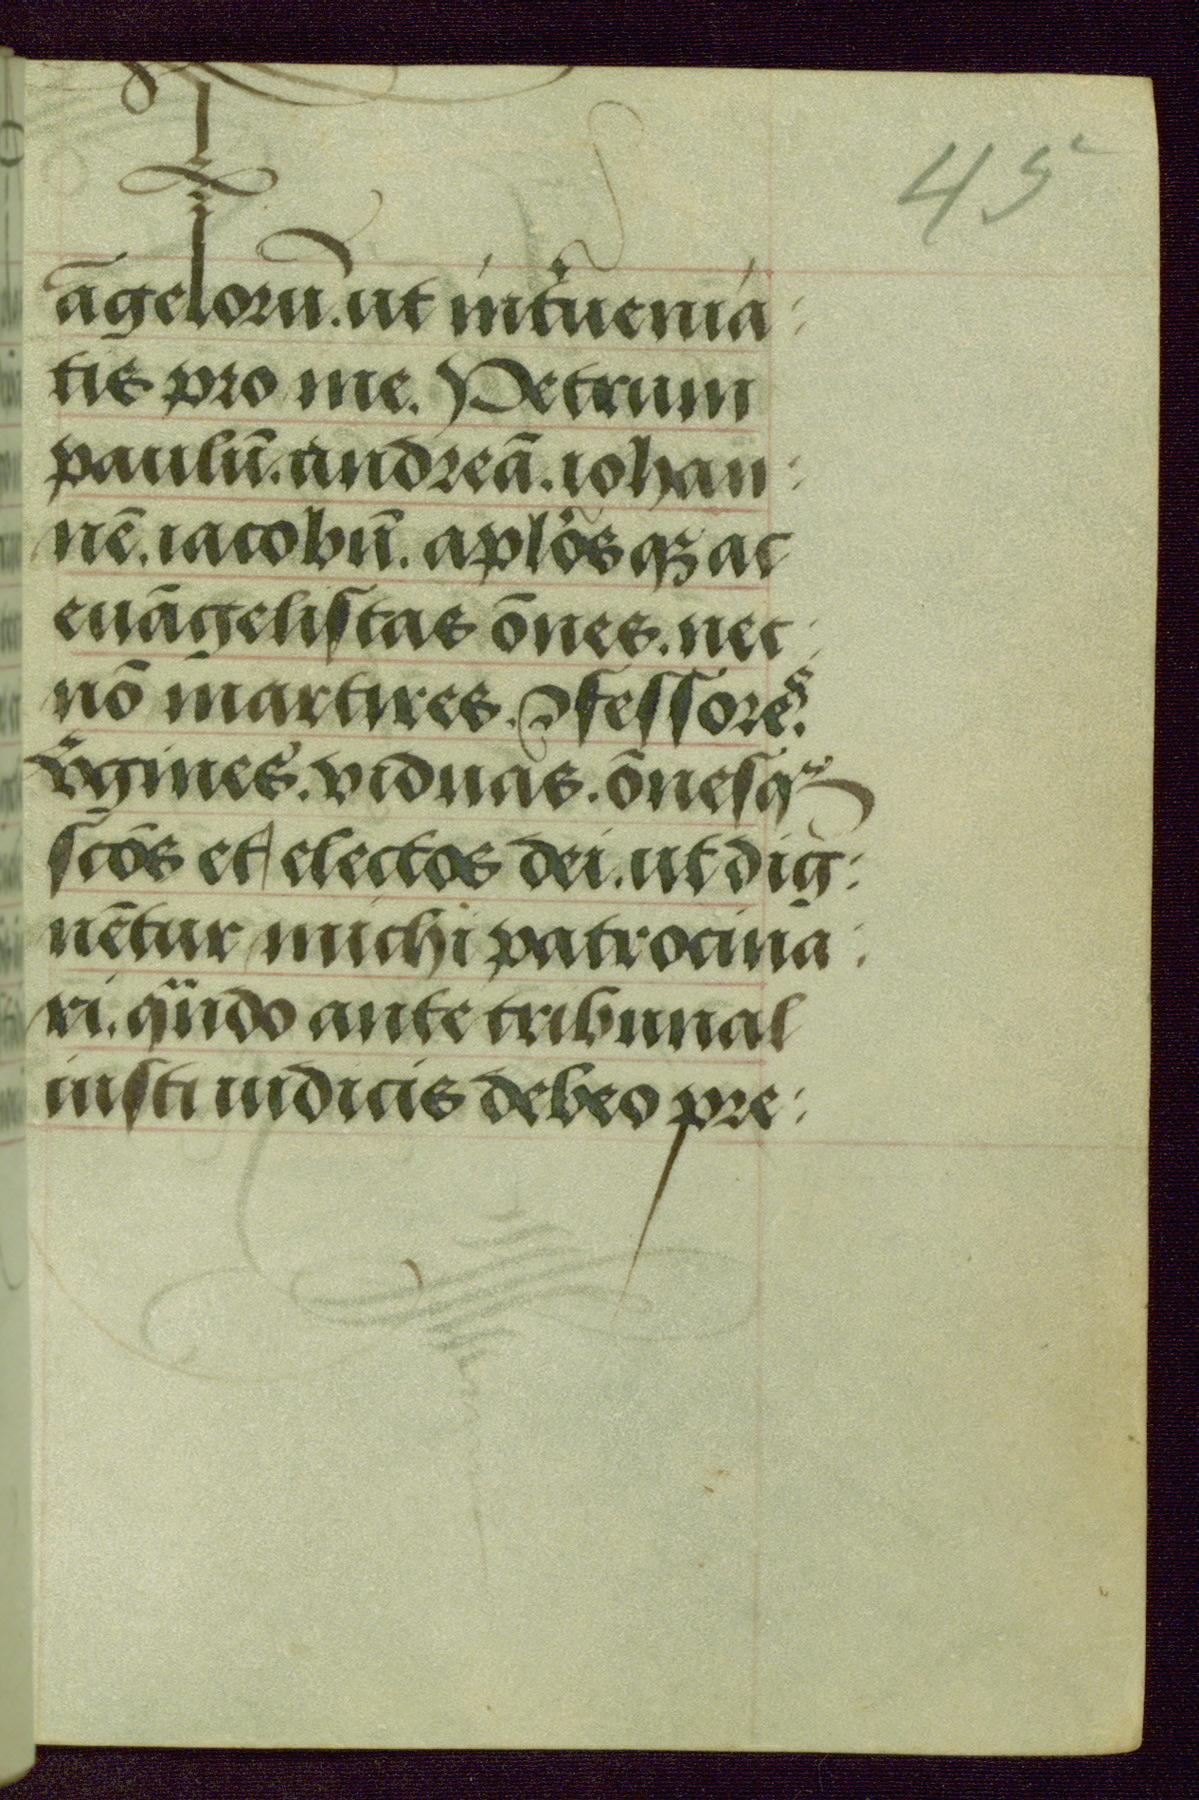 45
āgelorū. ut int͛uenia:
tis pro me. Petrum
paulū. andreā. iohan:
nē. iacobū. apl̓os qꝫ ac
euāgelistas ōnes. nec:
nō martires. ꝯfessores.
v͛gines. viduas. ōnesqꝫ
scōs et electos dei. ut diḡ:
nētur michi patrocina:
ri. qn̄do ante tribunal
iusti iudicis debeo pre: